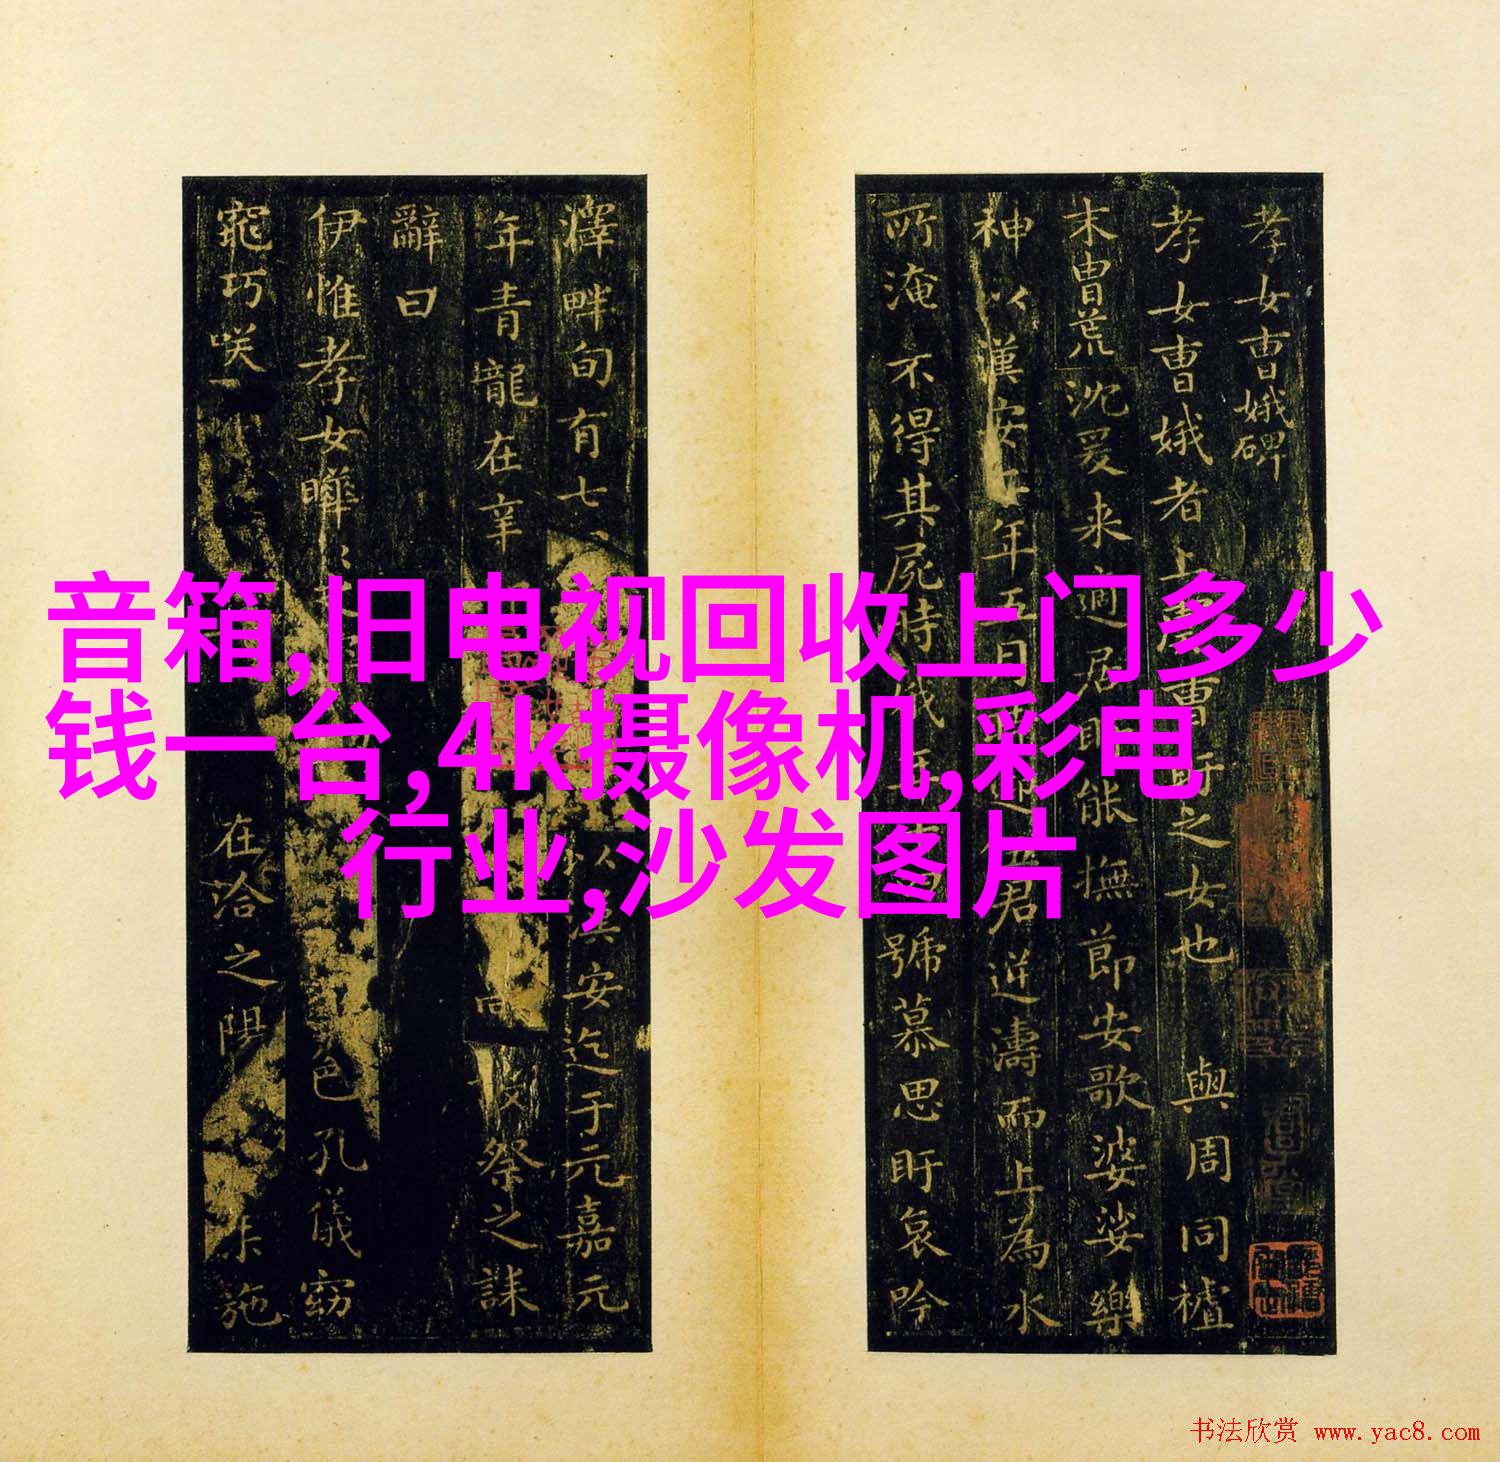 音箱,旧电视回收上门多少
钱一台,4k摄像机,彩电
行业,沙发图片
孝女曹娥碑
孝女曹娥者上曹盱之女也與周同禇
末胄荒沈爰来適居盱能撫節安歌婆娑樂
神以漢安年五月君逆濤而上為水
所淹不得其屍時娥年號慕思盱哀吟
澤畔旬有七以漢安迄于元嘉元
年青龍在辛祭之誄
辭曰
伊惟孝女曄色孔儀窈
窕巧咲在洽之陽施
书法欣赏 www.yac8.com